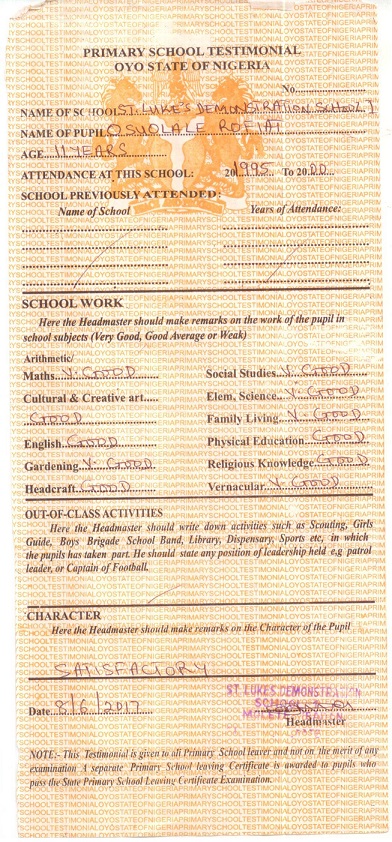 PRIMARY SCHOOL TESTIMONIAL
OYO STATE OF NIGERIA
No............
NAME OF SCHOOL ST. LUKE'S DEMONSTRATION SCHOOL I
NAME OF PUPIL OSHOLALE ROFIAT
AGE 11 YEARS
ATTENDANCE AT THIS SCHOOL: 20 1995 To 20.00
SCHOOL PREVIOUSLY ATTENDED:
Name of School Years of Attendance:
SCHOOL WORK
Here the Headmaster should make remarks on the work of the pupil in
school subjects (Very Good, Good Average or Weak)
Arithmetic/
Maths V. GOOD Social Studies V. GOOD
Cultural & Creative art..... Elem, Science V. GOOD
GOOD Family Living V. GOOD
English GOOD Physical Education GOOD
Gardening V. GOOD Religious Knowledge GOOD
Headcraft GOOD Vernacular V. GOOD
OUT-OF-CLASS ACTIVITIES
Here the Headmaster should write down activities such as Scouting, Girls
Guide, Boys Brigade School Band, Library, Dispensary, Sports etc, in which
the pupils has taken part. He should state any position of leadership held e.g patrol
leader, or Captain of Football.
CHARACTER
Here the Headmaster should make remarks on the Character of the Pupil
SATISFACTORY
ST LUKES DEMONSTRATION
SCHOOL
Date 8/6/2017 MOLETE
Headmaster
NOTE:- This Testimonial is given to all Primary School leaver and not on the merit of any
examination A separate Primary School leaving Certificate is awarded to pupils who
pass the State Primary School Leaving Certificate Examination.